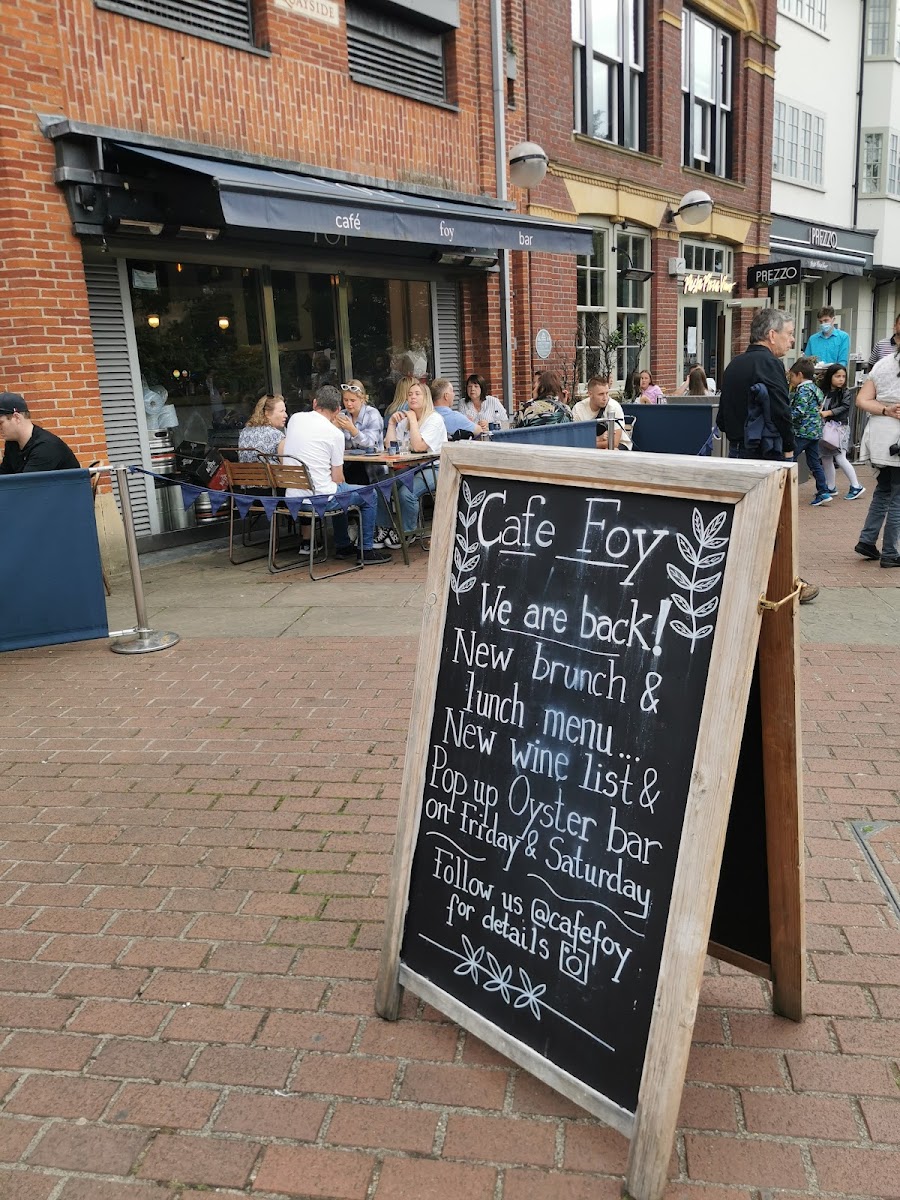 QUAYSIDE
café foy bar
PREZZO
PREZZO
Cafe Foy
We are back!
New brunch &
lunch menu...
New wine list &
Pop up Oyster bar
on Friday & Saturday
Follow us @cafefoy
for details